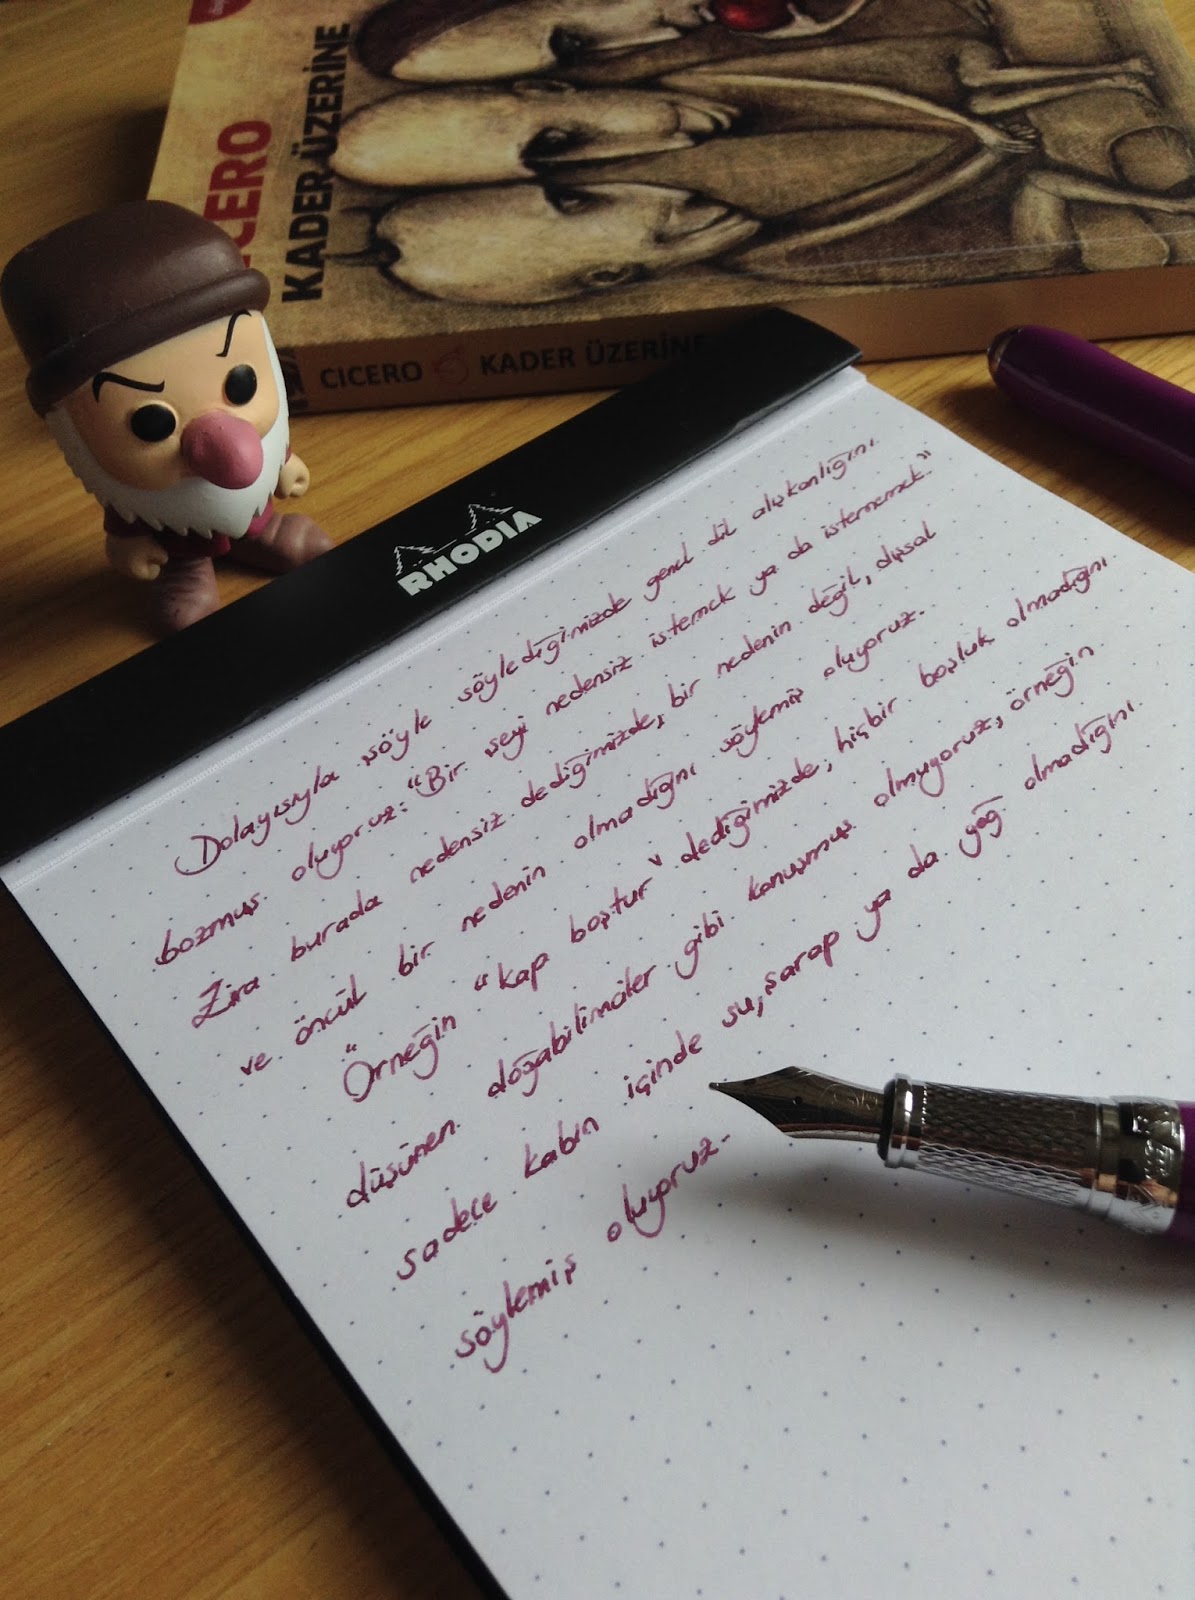 CICERO
KADER ÜZERİNE
CICERO KADER ÜZERİNE
RHODIA
Dolayısıyla şöyle söylediğimizde genel dil alışkanlığını
bozmuş oluyoruz: "Bir şeyi nedensiz istemek ya da istememek."
Zira burada nedensiz dediğimizde, bir nedenin değil, dışsal
ve öncül bir nedenin olmadığını söylemiş oluyoruz.
Örneğin "kap boştur" dediğimizde, hiçbir boşluk olmadığını
düşünen doğabilimciler gibi konuşmuş olmuyoruz, örneğin
sadece kabın içinde su, şarap ya da yağ olmadığını
söylemiş oluyoruz.